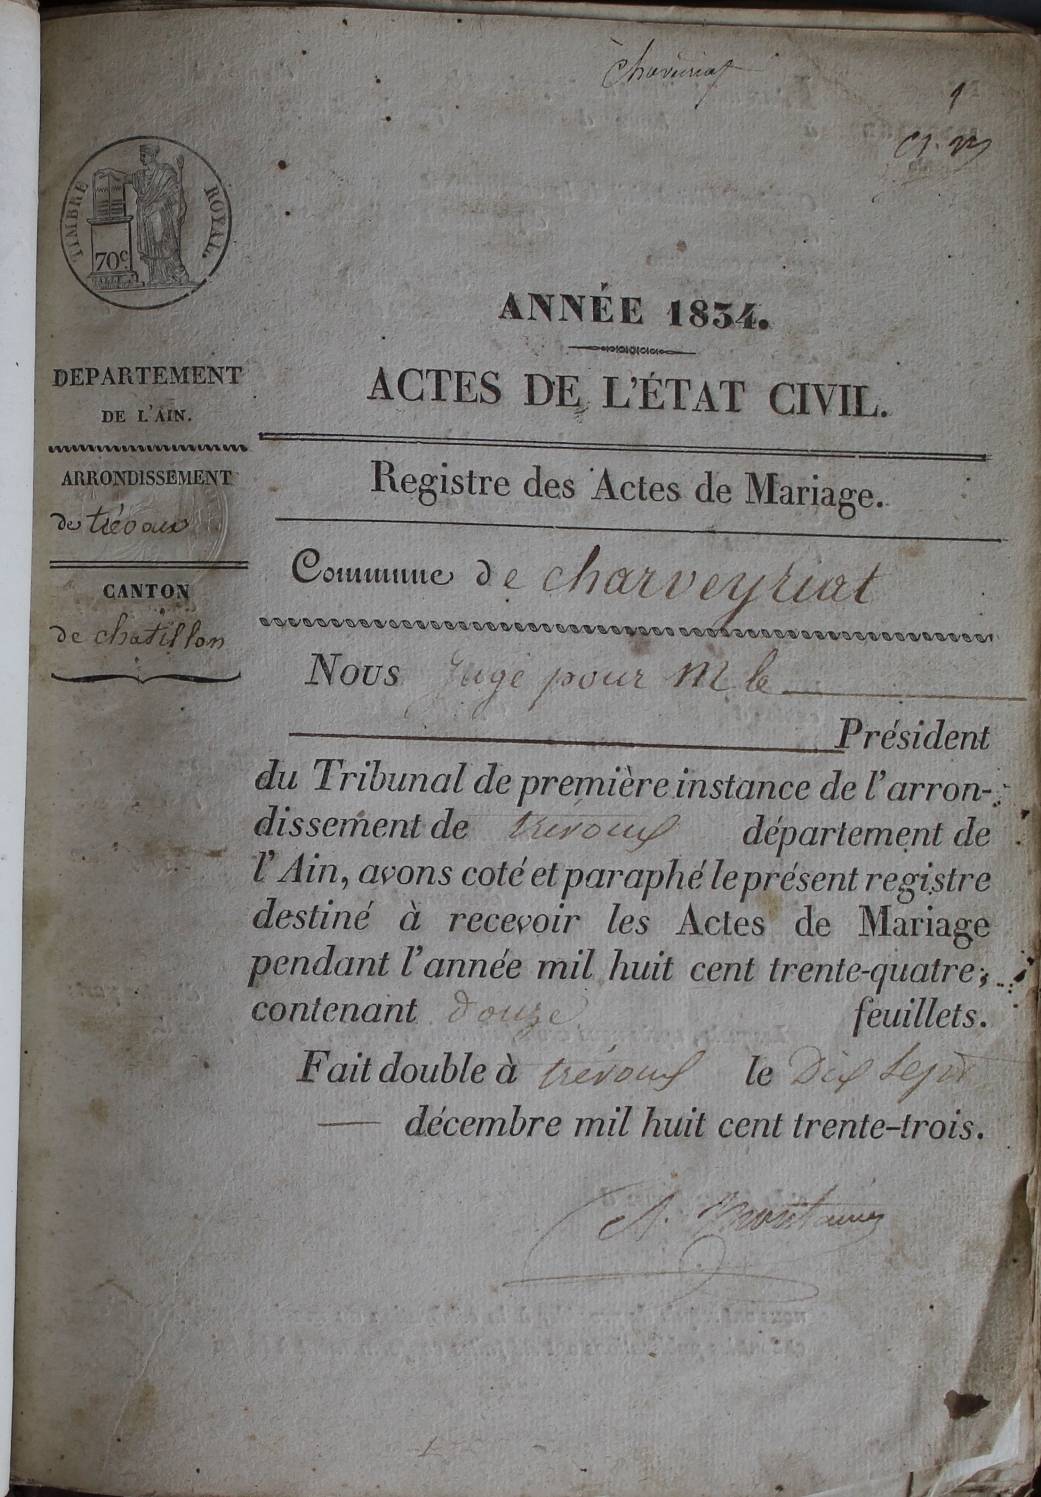 Chaveiriat
1
TIMBRE ROYAL.
70c
ANNÉE 1834.
ACTES DE L'ÉTAT CIVIL.
DEPARTEMENT
DE L'AIN.
ARRONDISSEMENT
de trévoux
CANTON
de chatillon
Registre des Actes de Mariage.
Commune de charveyriat
Nous Juge pour M. le
Président
du Tribunal de première instance de l'arron-
dissement de trévoux département de
l'Ain, avons coté et paraphé le présent registre
destiné à recevoir les Actes de Mariage
pendant l'année mil huit cent trente-quatre;
contenant douze feuillets.
Fait double à trévoux le Dix Sept
décembre mil huit cent trente-trois.